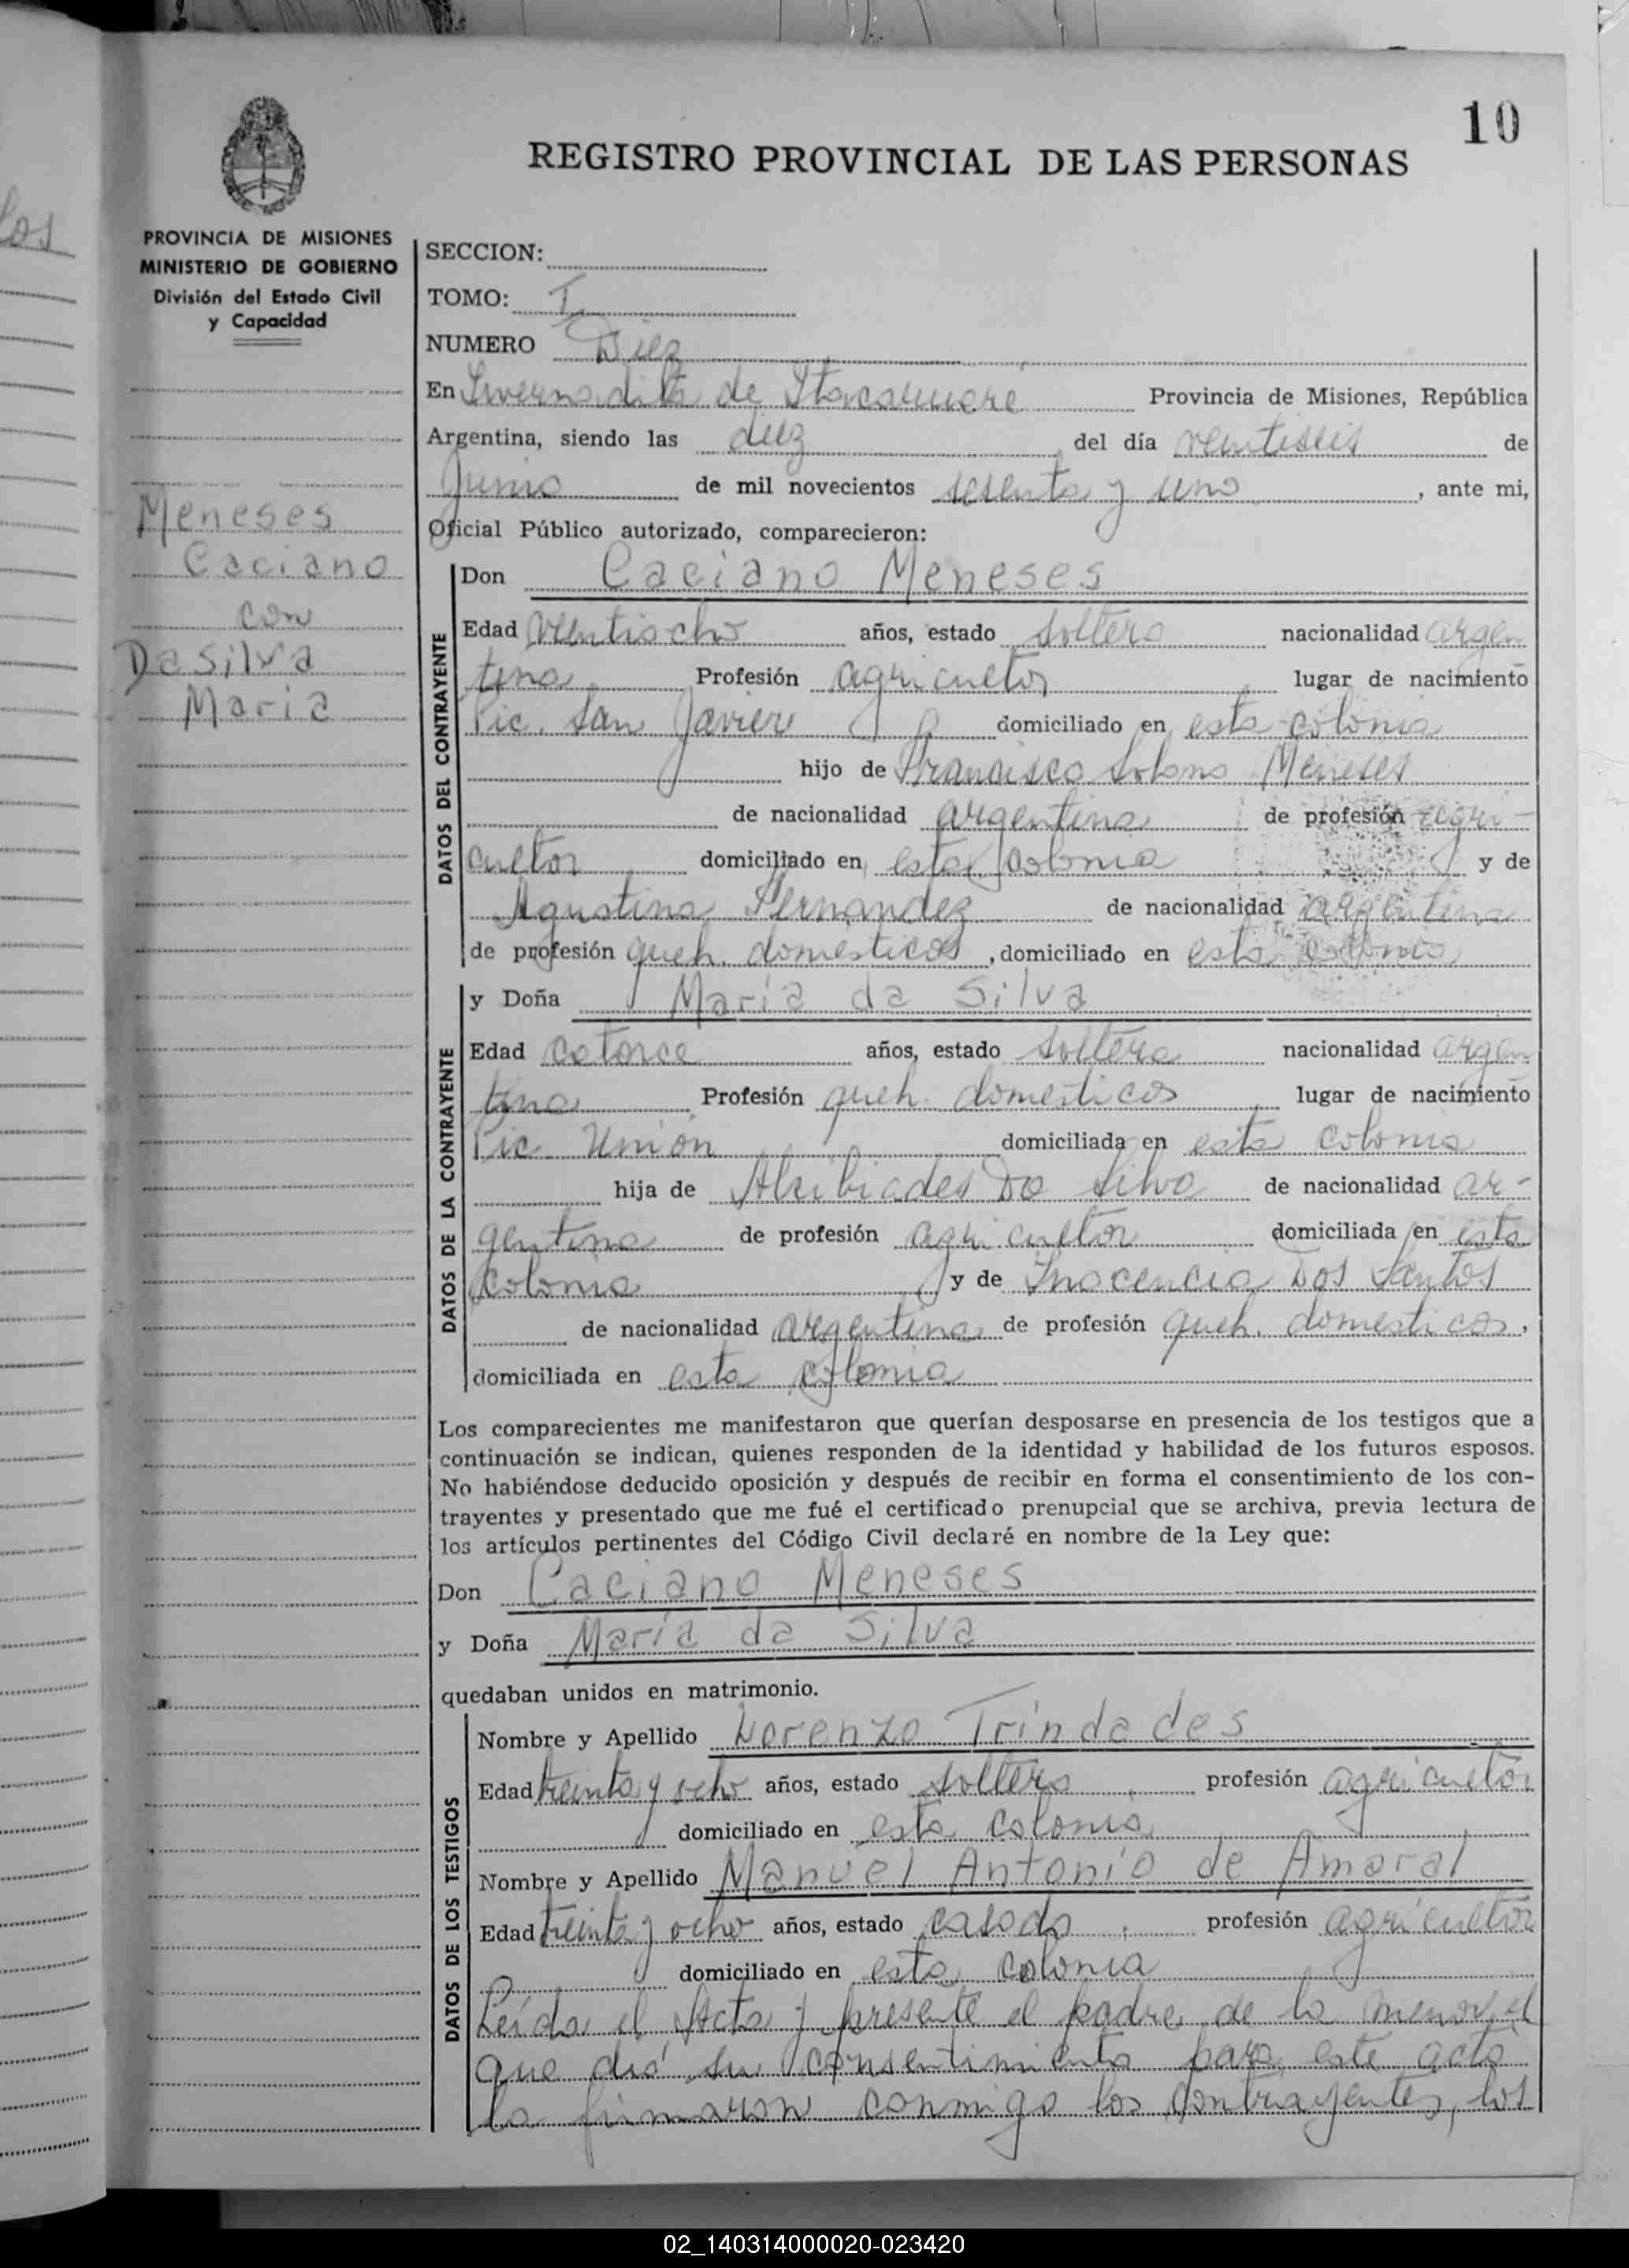 los
10
REGISTRO PROVINCIAL DE LAS PERSONAS
PROVINCIA DE MISIONES
MINISTERIO DE GOBIERNO
División del Estado Civil
y Capacidad
Meneses
Caciano
con
Da Silva
Maria
SECCION:
TOMO: I
NUMERO Diez
En Invernadita de Itacaruaré Provincia de Misiones, República
Argentina, siendo las diez del día veintiseis de
Junio de mil novecientos sesenta y uno, ante mi,
Oficial Público autorizado, comparecieron:
DATOS DEL CONTRAYENTE
Don Caciano Meneses
Edad ventiocho años, estado soltero nacionalidad argen
tina Profesión agricultor lugar de nacimiento
Pic. San Javier domiciliado en esta colonia
hijo de Francisco Solano Meneses
de nacionalidad argentina de profesión agri-
cultor domiciliado en esta colonia y de
Agustina Fernandez de nacionalidad argentina
de profesión queh. domésticos, domiciliado en esta colonia
DATOS DE LA CONTRAYENTE
y Doña María da Silva
Edad catorce años, estado soltera nacionalidad argen
tina Profesión queh. domesticos lugar de nacimiento
Pic. Unión domiciliada en esta colonia
hija de Alcibiades Da Silva de nacionalidad ar-
gentina de profesión agricultor domiciliada en esta
colonia y de Inocencia Dos Santos
de nacionalidad argentina de profesión queh. domesticos,
domiciliada en esta colonia
Los comparecientes me manifestaron que querían desposarse en presencia de los testigos que a
continuación se indican, quienes responden de la identidad y habilidad de los futuros esposos.
No habiéndose deducido oposición y después de recibir en forma el consentimiento de los con-
trayentes y presentado que me fué el certificado prenupcial que se archiva, previa lectura de
los artículos pertinentes del Código Civil declaré en nombre de la Ley que:
Don Caciano Meneses
y Doña María da Silva
quedaban unidos en matrimonio.
DATOS DE LOS TESTIGOS
Nombre y Apellido Lorenzo Trindades
Edad treinta y ocho años, estado soltero profesión agricultor
domiciliado en esta colonia
Nombre y Apellido Manuel Antonio de Amaral
Edad treinta y ocho años, estado casado profesión agricultor
domiciliado en esta colonia
Leída el Acta y presente el padre de la menor, el
que dió su consentimiento para este acto
la firmaron conmigo los contrayentes, los
02_140314000020-023420